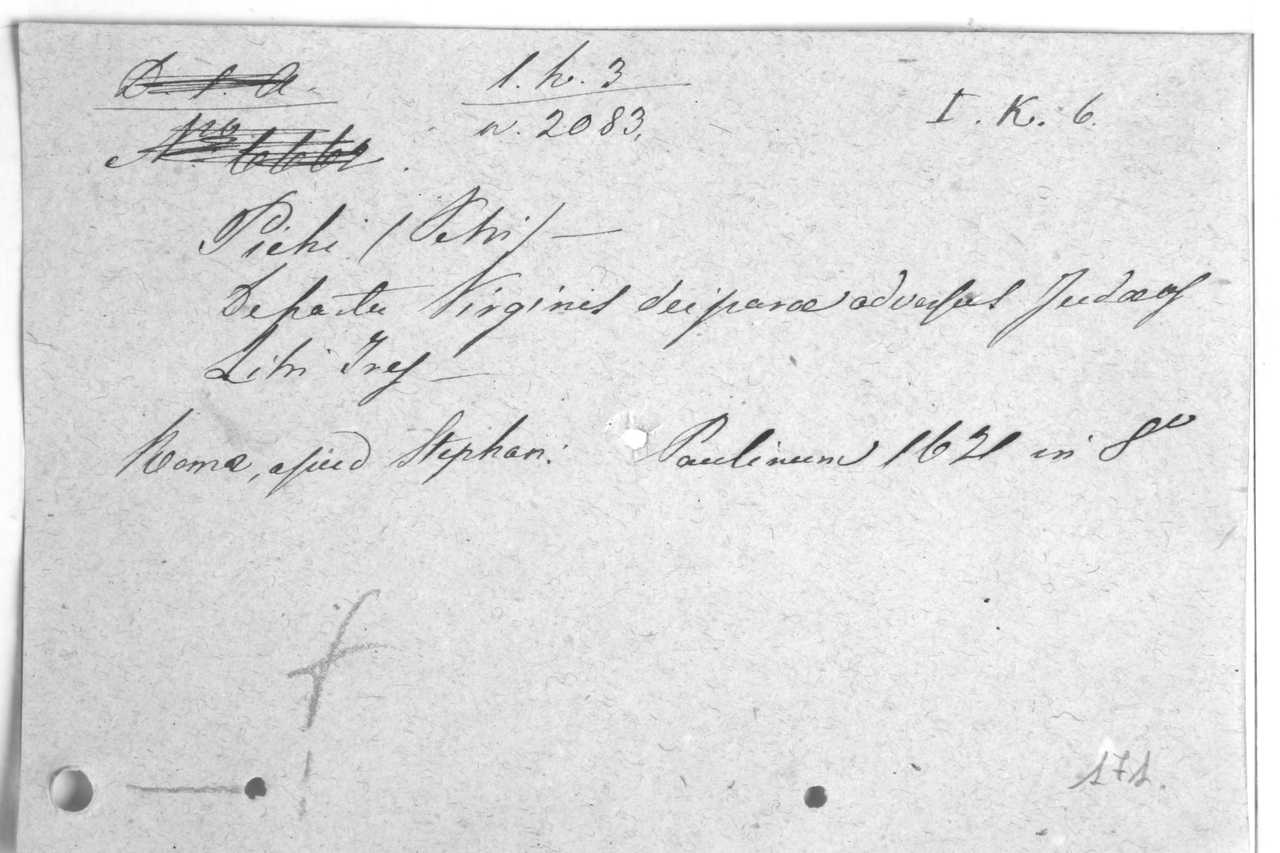 D. 1. A.
1. h. 3
Nro 6661.
n. 2083.
I. K. 6.
Pichi (Petri) —
De partu Virginis deiparae adversus Judaeos
Libri Tres —
Romae, apud Stephan: Paulinum 1621 in 8vo
f
171.